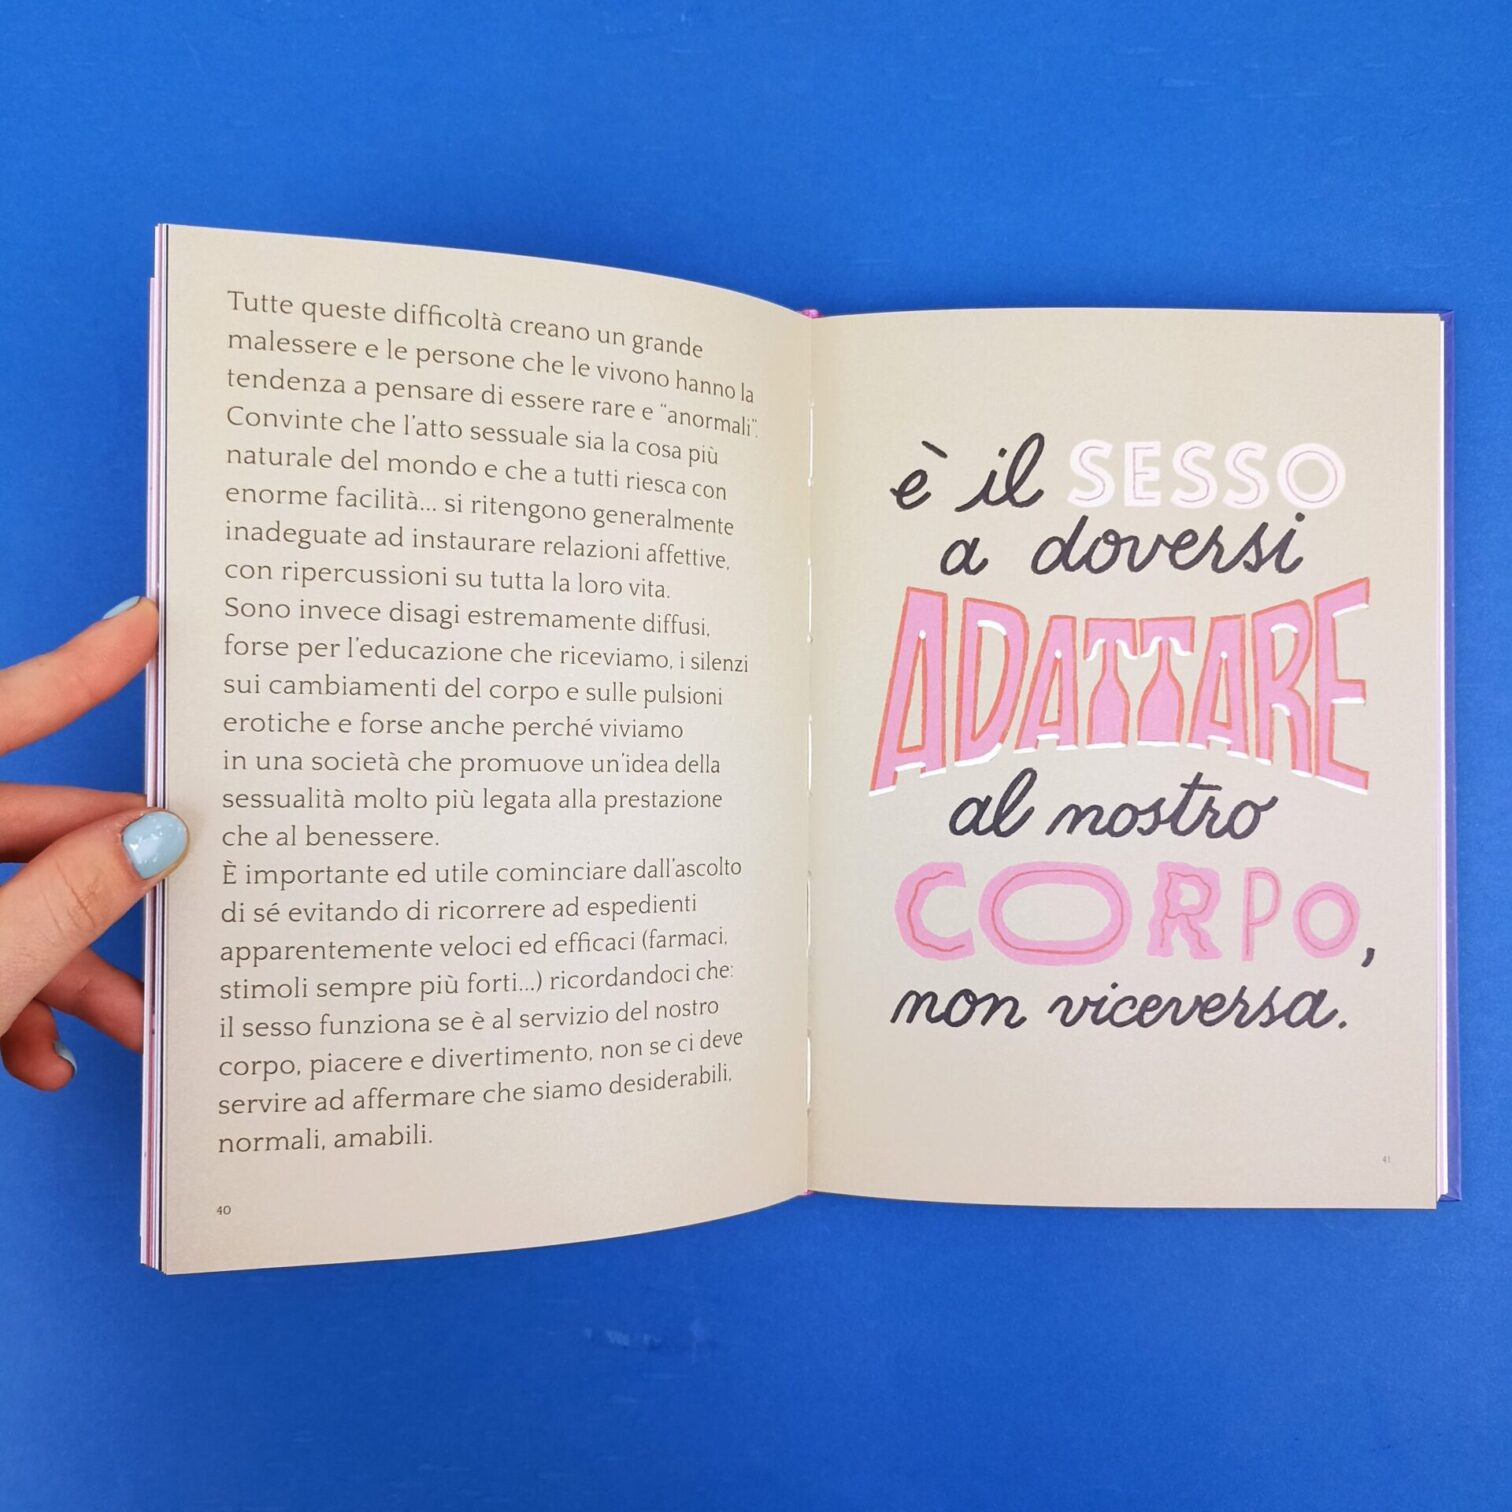 Tutte queste difficoltà creano un grande
malessere e le persone che le vivono hanno la
tendenza a pensare di essere rare e “anormali”.
Convinte che l’atto sessuale sia la cosa più
naturale del mondo e che a tutti riesca con
enorme facilità... si ritengono generalmente
inadeguate ad instaurare relazioni affettive,
con ripercussioni su tutta la loro vita.
Sono invece disagi estremamente diffusi,
forse per l’educazione che riceviamo, i silenzi
sui cambiamenti del corpo e sulle pulsioni
erotiche e forse anche perché viviamo
in una società che promuove un’idea della
sessualità molto più legata alla prestazione
che al benessere.
È importante ed utile cominciare dall’ascolto
di sé evitando di ricorrere ad espedienti
apparentemente veloci ed efficaci (farmaci,
stimoli sempre più forti...) ricordandoci che:
il sesso funziona se è al servizio del nostro
corpo, piacere e divertimento, non se ci deve
servire ad affermare che siamo desiderabili,
normali, amabili.
40
è il SESSO
a doversi
ADATTARE
al nostro
CORPO,
non viceversa.
41